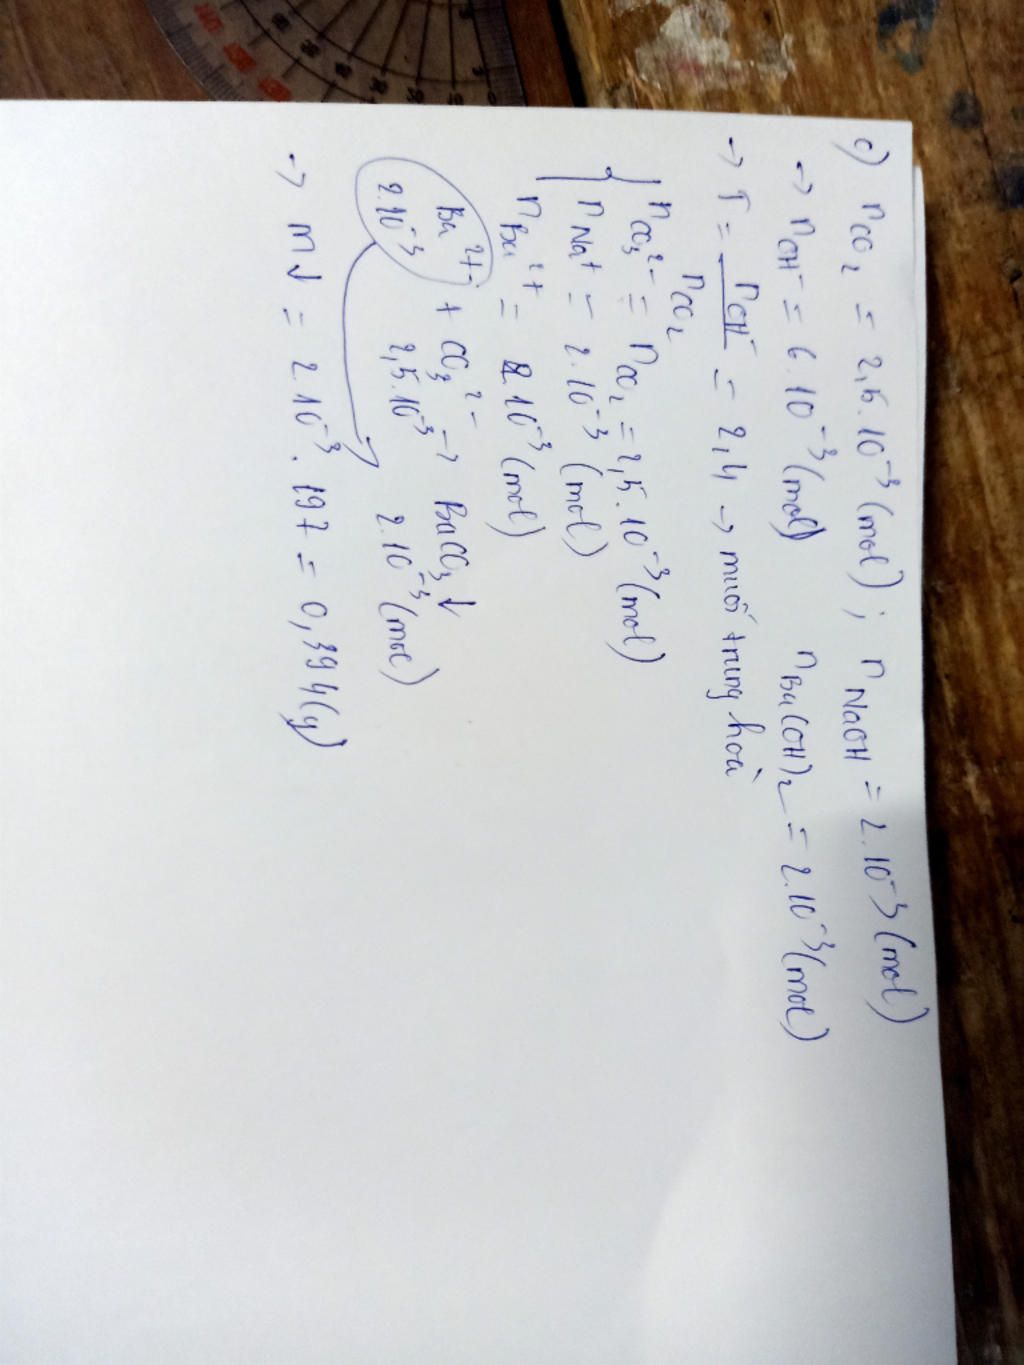 c) nCO2 = 2,5.10^-3 (mol); nNaOH = 2.10^-3 (mol)
→ nOH^- = 6.10^-3 (mol) nBa(OH)2 = 2.10^-3 (mol)
→ T = nOH^- / nCO2 = 2,4 → muối trung hoà
{ nCO3^2- = nCO2 = 2,5.10^-3 (mol)
nNa^+ = 2.10^-3 (mol)
nBa^2+ = 2.10^-3 (mol)
Ba^2+ + CO3^2- → BaCO3↓
2.10^-3 2,5.10^-3 2.10^-3 (mol)
→ m↓ = 2.10^-3 . 197 = 0,394 (g)